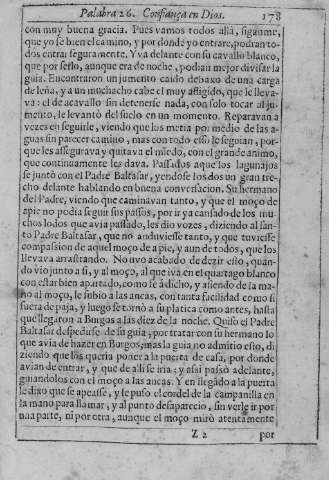 Palabra 26. Confiança en Dios. 178
con muy buena gracia. Pues vamos todos allà, siganme,
que yo se bien el camino, y por donde yo entrare, podran to-
dos entrar seguramente. Y va delante con su cavallo blanco,
que por serlo, aunque era de noche, podian mejor divisar la
guia. Encontraron un jumento caido debaxo de una carga
de leña, y a un muchacho cabe el muy afligido, que le lleva-
va: el de acavallo sin detenerse nada, con solo tocar al ju-
mento, le levantò del suelo en un momento. Reparavan a
vezes en seguirle, viendo que los metia por medio de las a-
guas sin parecer camino, mas con todo esso le seguian, por-
que les assegurava y quitava el miedo, con el grande animo,
que continuamente les dava. Passados aquellos lagunajos
se juntò con el Padre Baltasar, yendose los dos un gran tre-
cho delante hablando en buena conversacion. Su hermano
del Padre, viendo que caminavan tanto, y que el moço de
apie no podia seguir sus passos, por ir ya cansado de los mu-
chos lodos que avia passado, les dio vozes, diziendo al san-
to Padre Baltasar, que no anduviesse tanto, y que tuviesse
compassion de aquel moço de a pie, y aun de todos, que los
llevava arrastrando. No uvo acabado de dezir esto, quan-
do vio junto a si, y al moço, al que iva en el quartago blanco
con estar bien apartado, como se à dicho, y asiendo de la ma-
no al moço, le subio a las ancas, con tanta facilidad como si
fuera de paja, y luego se tornò a su platica como antes, hasta
que llegaron a Burgos a las diez de la noche. Quiso el Padre
Baltasar despedirse de su guia, por tratar con su hermano lo
que avia de hazer en Burgos; mas la guia no admitio esto, di
ziendo que los queria poner a la puerta de casa, por donde
avian de entrar, y que de alli se iria: y assi passò adelante,
guiandolos con el moço a las ancas. Y en llegado a la puerta
le dixo que se apeasse, y le puso el cordel de la campanilla en
la mano para llamar, y al punto desaparecio, sin verle ir por
una parte, ni por otra, aunque el moço mirò atentamente
Z 2 por